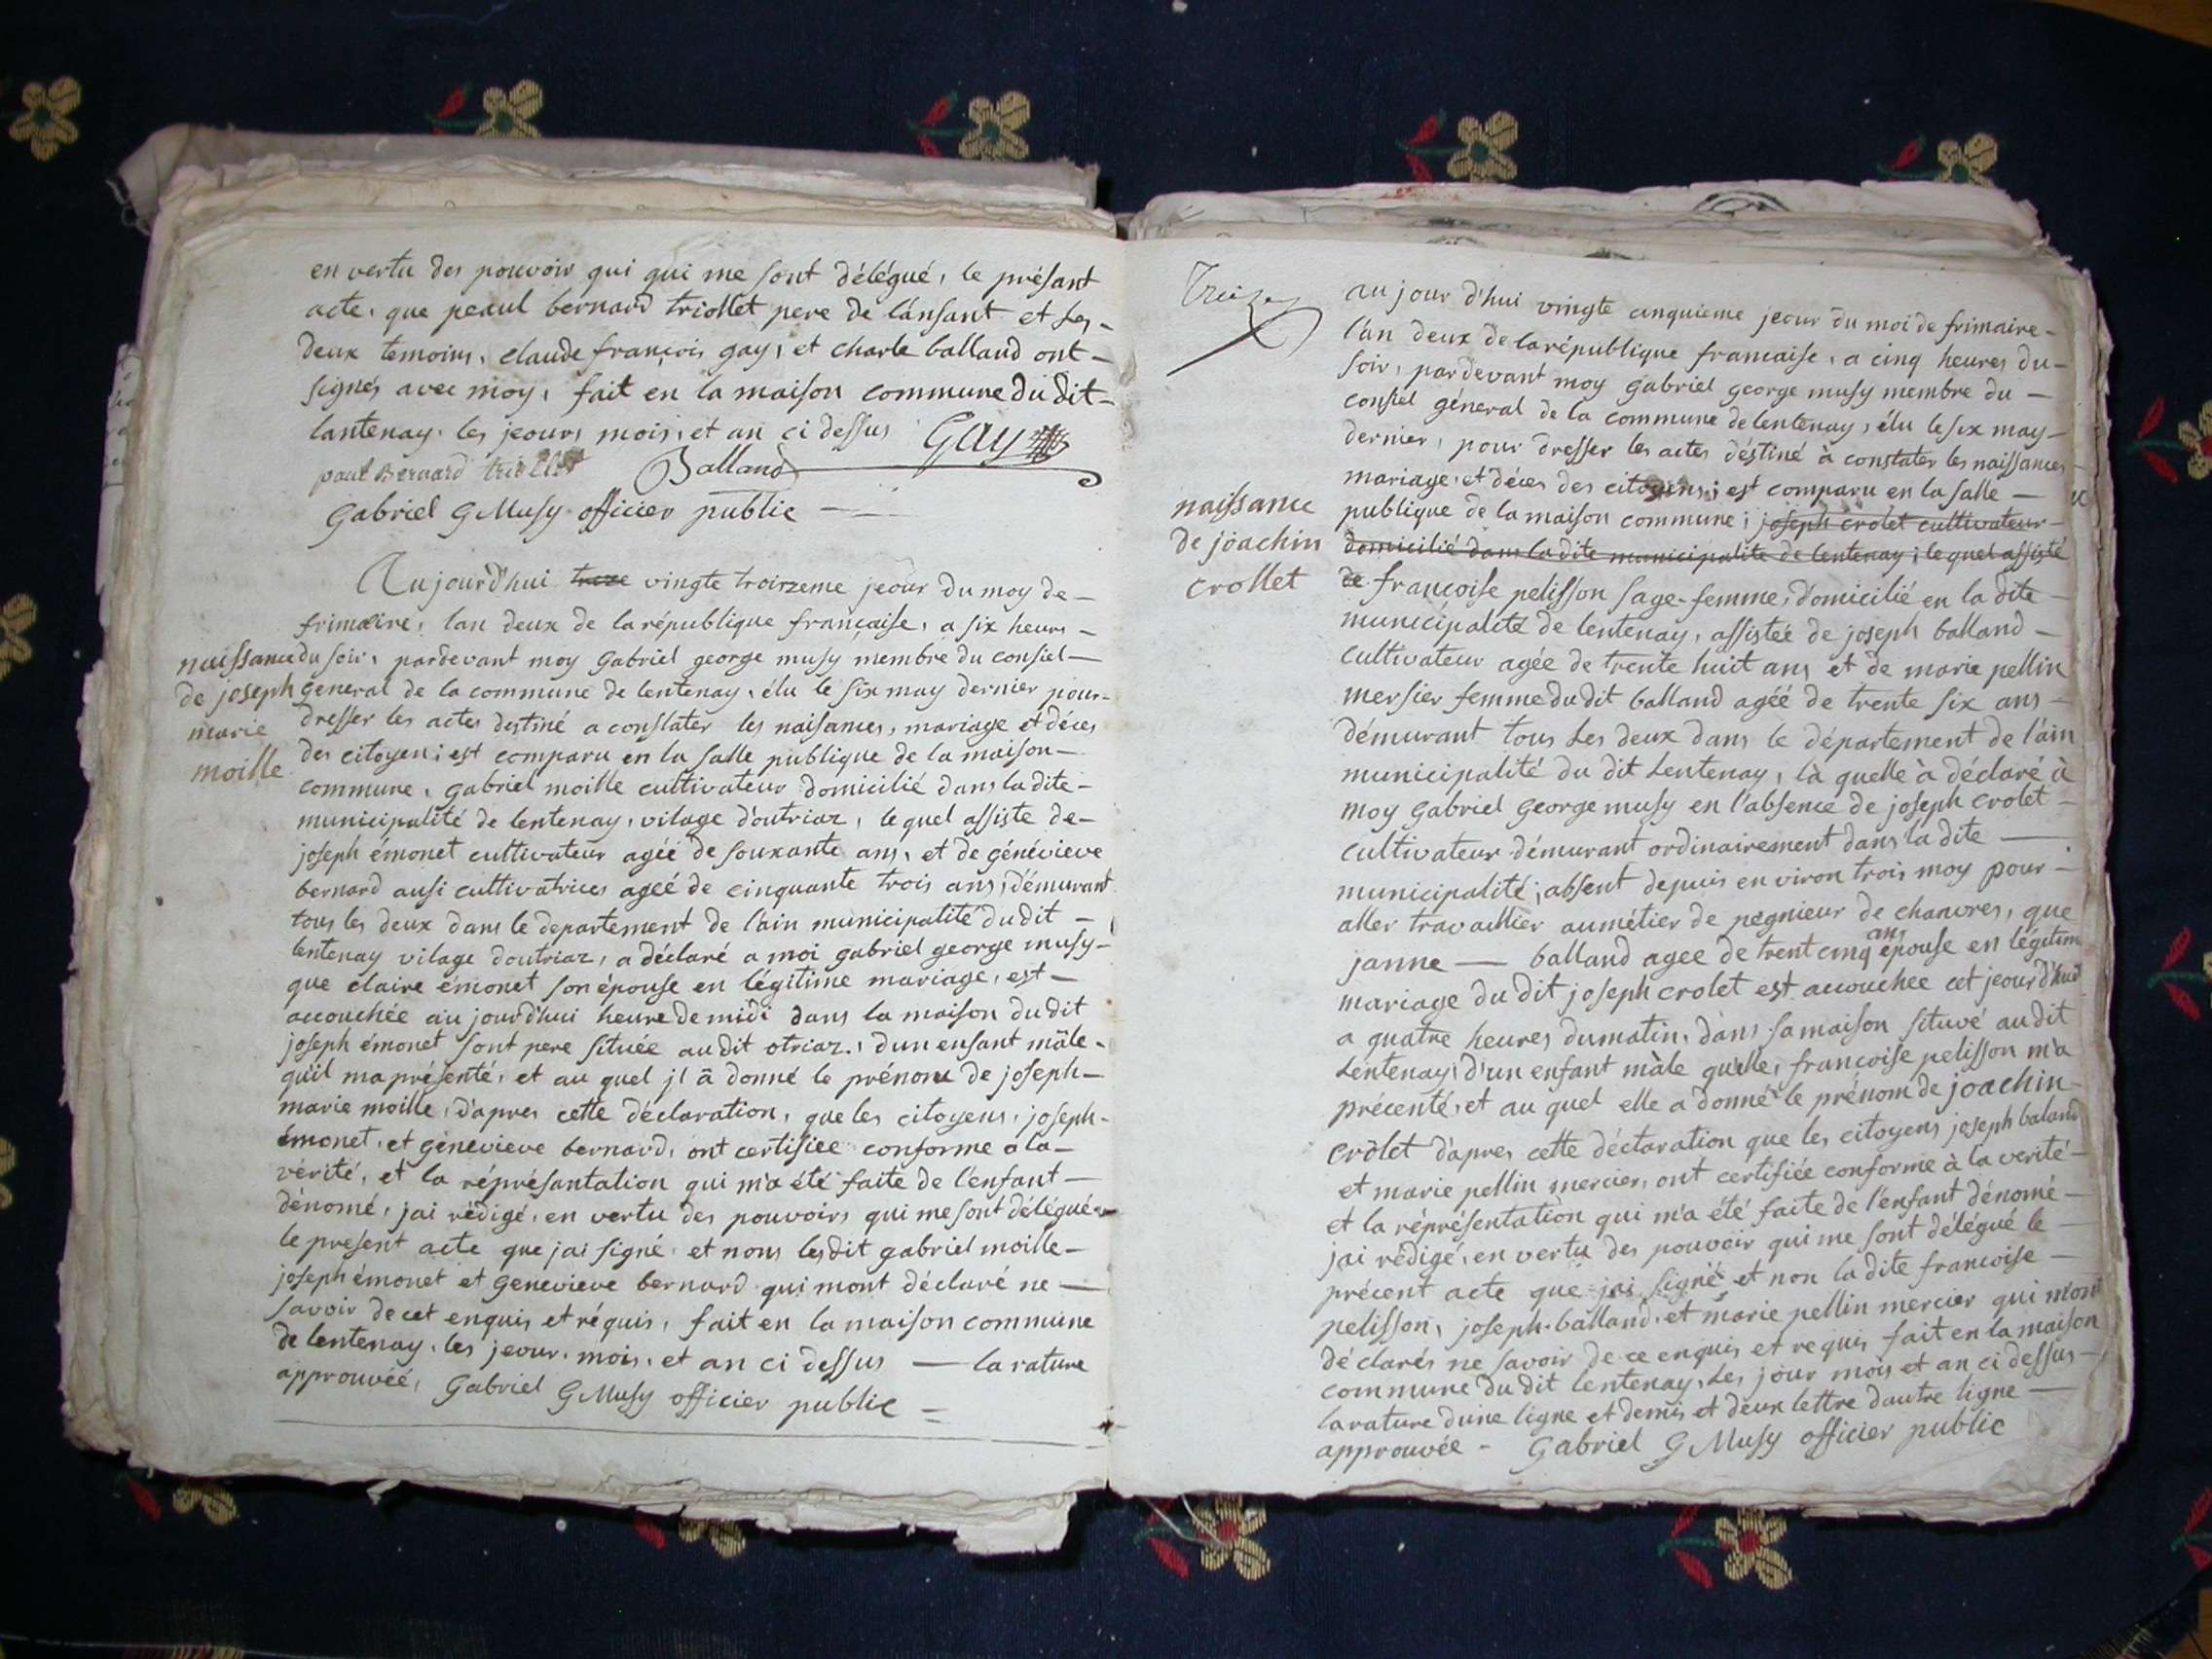 en vertu des pouvoir qui qui me sont délégué, le présant
acte, que peaul bernard triollet pere de l'ansant et ses
deux temoins, claude françois gay, et charle balland ont
signés avec moy, fait en la maison commune du dit
lantenay. les jeours mois, et an ci dessus Gay
paul Bernard triollet Balland
Gabriel G Musy officier public
Aujourd'hui treze vingte troirzeme jeour du moy de
frimaire, lan deux de la république française, a six heurs
du soir, pardevant moy Gabriel george musy membre du consiel
general de la commune de lentenay, élu le six may dernier pour
dresser les actes destiné a constater les naisances, mariage et déces
des citoyen; est comparu en la salle publique de la maison
commune, gabriel moille cultivateur domicilié dans la dite
municipalité de lentenay, vilage d'outriaz, le quel assiste de
joseph émonet cultivateur agéé de souxante ans, et de généviève
bernard ausi cultivatrices ageé de cinquante trois ans, démurant
tous les deux dans le departement de l'ain municipalité du dit
lentenay vilage doutriaz, a déclaré a moi gabriel george musy
que claire émonet son épouse en légitime mariage, est
accouchée aujourd'hui heure de midi dans la maison du dit
joseph émonet sont pere située au dit otriaz, d'un ensant mâle
qu'il ma présenté, et au quel jl â donné le prénom de joseph
marie moille, d'apres cette déclaration, que les citoyens, joseph
émonet, et genevieve bernard, ont certisiée conforme a la
vérité, et la réprésantation qui m'a été faite de l'enfant
dénomé, jai rédigé, en vertu des pouvoirs qui me sont délégué
le present acte que jai signé, et nons lesdit gabriel moille
joseph émonet et genevieve bernard qui mont déclaré ne
savoir de cet enquis et réquis, fait en la maison commune
de lentenay, les jeour, mois, et an ci dessus la rature
approuvéé, Gabriel G Musy officier public
naissance
de joseph
marie
moille
Treize
au jour d'hui vingte cinquieme jeour du moi de frimaire
l'an deux de la république francaise, a cinq heures du
soir, pardevant moy Gabriel george musy membre du
consiel géneral de la commune de lentenay, élu le six may
dernier, pour dresser les actes déstiné à constater les naissances
mariage, et déces des citoyens; est comparu en la salle
publique de la maison commune; joseph crolet cultivateur
domicilié dans la dite municipalité de lentenay; le quel assisté
de françoise pelisson sage-femme, domicilié en la dite
municipalité de lentenay, assistée de joseph balland
cultivateur agée de trente huit ans et de marie pellin
mersier femme du dit balland agéé de trente six ans
démurant tous les deux dans le département de l'ain
municipalité du dit Lentenay, là quelle à déclaré à
moy Gabriel George musy en l'absence de joseph crolet
cultivateur démurant ordinairement dans la dite
municipalité; absent depuis environ trois moy pour
aller travaillier au métier de pegnieur de chanvres, que
janne balland agee de trent cinq ans épouse en légitime
mariage du dit joseph crolet est accouchee cet jeour d'huit
a quatre heures du matin, dans sa maison situvé au dit
Lentenay, d'un enfant mâle qu'elle, francoise pelisson m'a
précenté, et au quel elle a donné le prénom de joachin
crôlet d'apres cette déctaration que les citoyens joseph baland
et marie pellin mercier, ont certifiée conforme à la verité
et la réprésentation qui m'a été faite de l'enfant dénomé
jai rédigé, en vertu des pouvoir qui me sont délégué le
précent acte que jai signé, et non la dite francoise
pelisson, joseph balland, et marie pellin mercier qui m'ont
déclarés ne savoir de ce enquis et requis fait en la maison
commune du dit lentenay, Les jour mois et an ci dessus
la rature d'une ligne et demis et deux lettre dautre ligne
approuvée - Gabriel G Musy officier public
naissance
de joachin
crollet